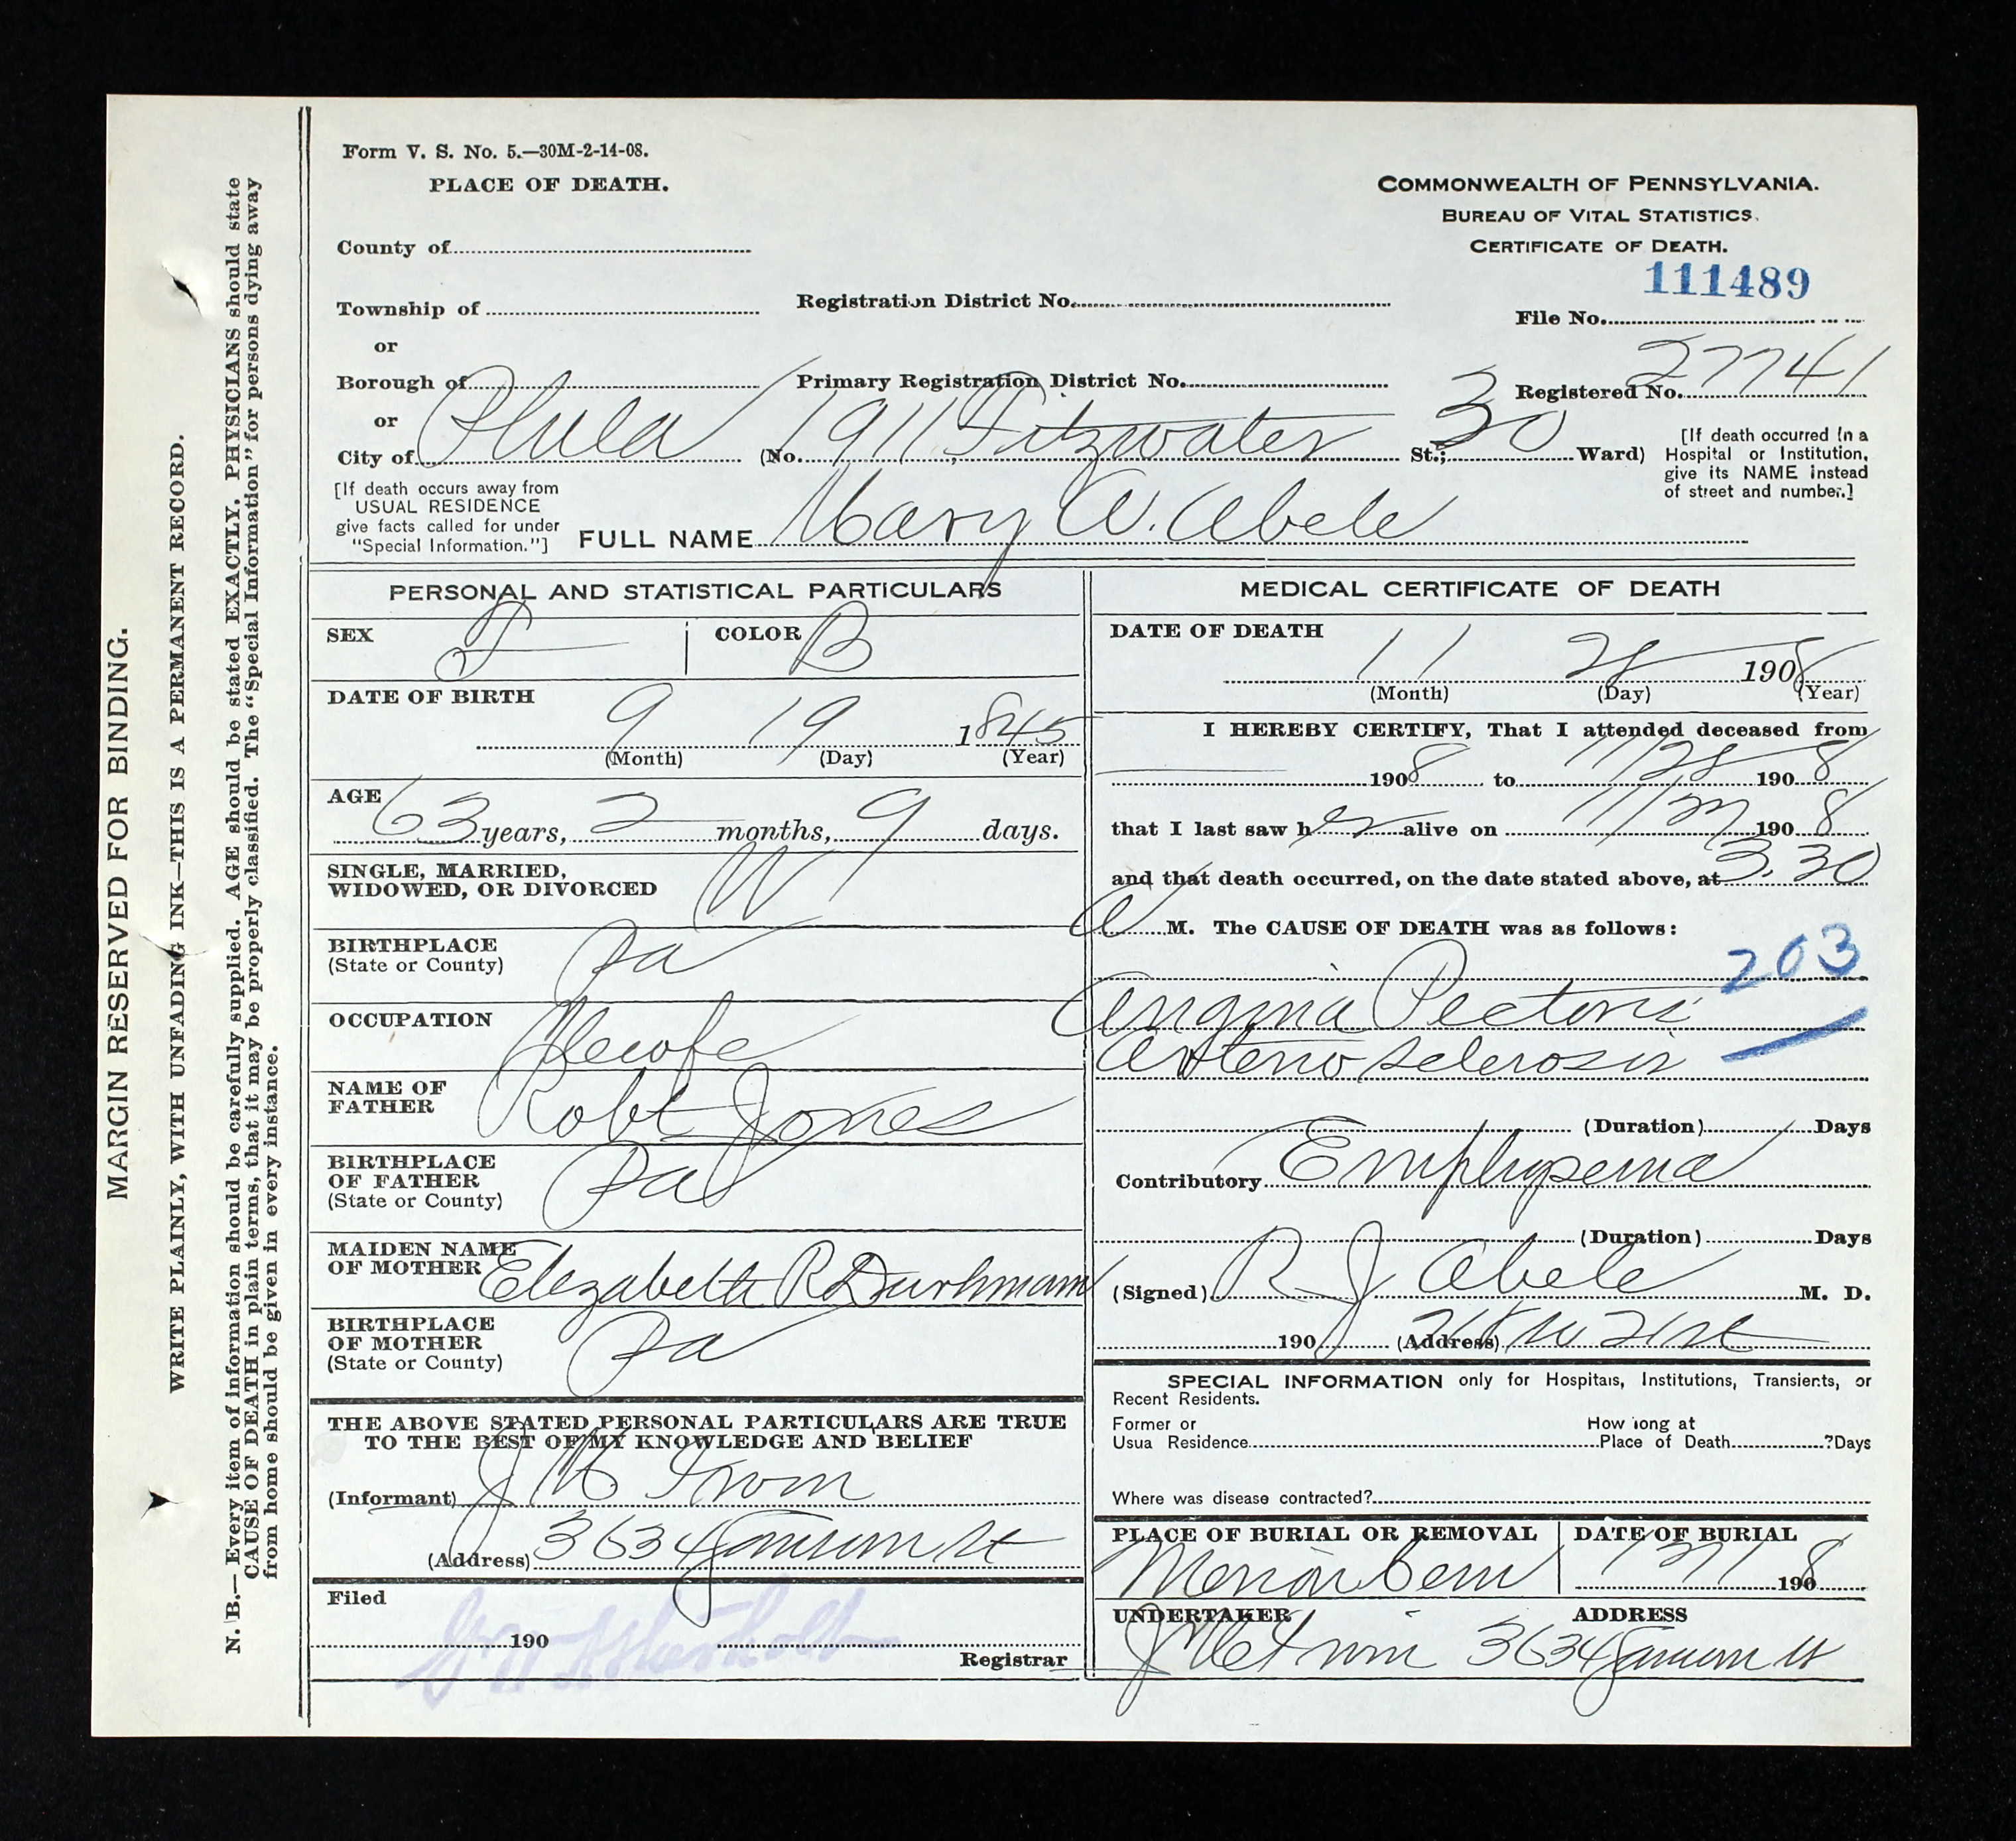 Form V. S. No. 5.—30M-2-14-08.
PLACE OF DEATH.
COMMONWEALTH OF PENNSYLVANIA.
BUREAU OF VITAL STATISTICS.
CERTIFICATE OF DEATH.
County of
111489
Township of
Registration District No.
File No.
or
27741
Borough of
Primary Registration District No.
Registered No.
or
City of Phila (No. 1911 Fitzwater St.; 30 Ward)
[If death occurred in a
Hospital or Institution,
give its NAME instead
of street and number.]
[If death occurs away from
USUAL RESIDENCE
give facts called for under
"Special Information."]
FULL NAME Mary A. Abele
PERSONAL AND STATISTICAL PARTICULARS
SEX F COLOR B
DATE OF BIRTH
9 19 1845
(Month) (Day) (Year)
AGE
63 years, 2 months, 9 days.
SINGLE, MARRIED,
WIDOWED, OR DIVORCED W
BIRTHPLACE
(State or County) Pa
OCCUPATION
NAME OF
FATHER Robt Jones
BIRTHPLACE
OF FATHER
(State or County) Pa
MAIDEN NAME
OF MOTHER Elezabeth R
BIRTHPLACE
OF MOTHER
(State or County) Pa
THE ABOVE STATED PERSONAL PARTICULARS ARE TRUE
TO THE BEST OF MY KNOWLEDGE AND BELIEF
(Informant)
(Address) 3634 St
Filed
190
Registrar
MEDICAL CERTIFICATE OF DEATH
DATE OF DEATH
11 28 1908
(Month) (Day) (Year)
I HEREBY CERTIFY, That I attended deceased from
1908 to 11/28 1908
that I last saw her alive on 11/27 1908
and that death occurred, on the date stated above, at 3.30
A M. The CAUSE OF DEATH was as follows:
203
Angina Pectoris
Arterio sclerosis
(Duration) Days
Contributory Emphysema
(Duration) Days
(Signed) R J Abele M. D.
190 (Address) 21st
SPECIAL INFORMATION only for Hospitals, Institutions, Transients, or
Recent Residents.
Former or
Usua Residence
How long at
Place of Death ?Days
Where was disease contracted?
PLACE OF BURIAL OR REMOVAL DATE OF BURIAL
Merion Cem 1908
UNDERTAKER ADDRESS
3634 St
MARGIN RESERVED FOR BINDING.
WRITE PLAINLY, WITH UNFADING INK—THIS IS A PERMANENT RECORD.
N. B.—Every item of information should be carefully supplied. AGE should be stated EXACTLY. PHYSICIANS should state
CAUSE OF DEATH in plain terms, that it may be properly classified. The "Special Information" for persons dying away
from home should be given in every instance.